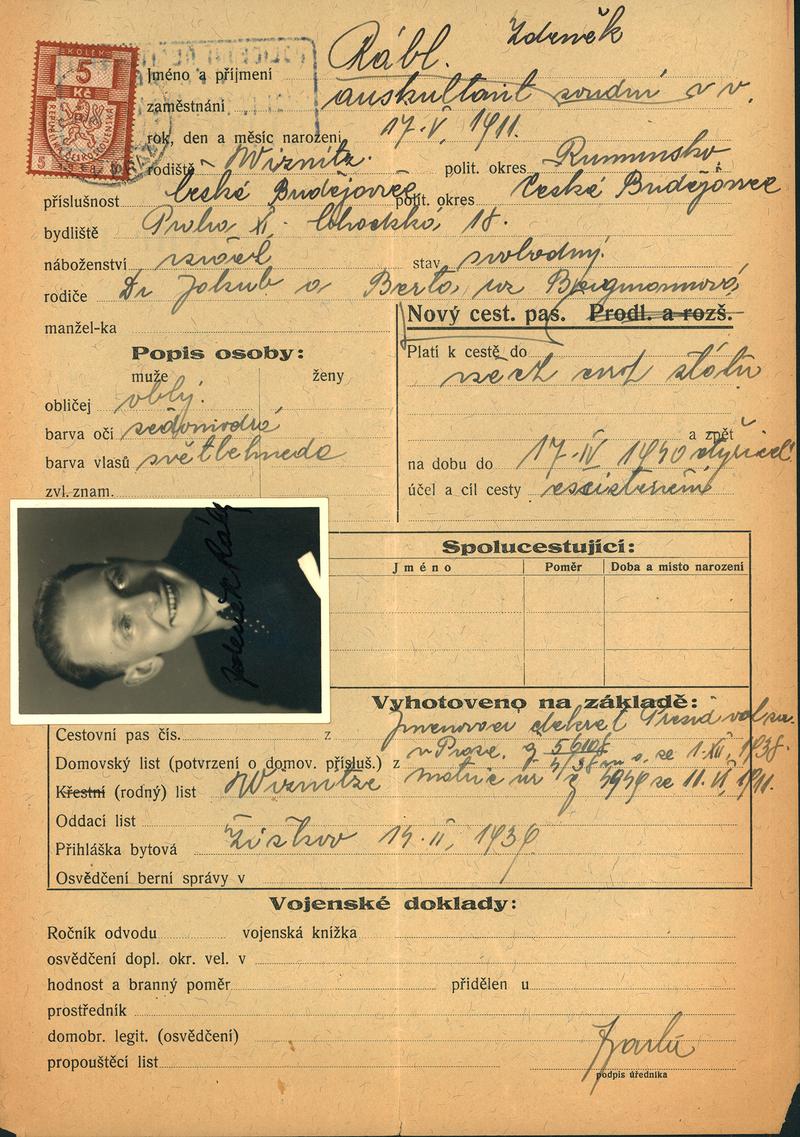 KOLEK
5
Kč
REPUBLIKA ČESKOSLOVENSKÁ
Zdeněk
Jméno a příjmení Rábl.
zaměstnání auskultant soudní v v.
rok, den a měsíc narození 17.V. 1911.
rodiště Wiznitz. polit. okres Rumunsko
příslušnost České Budějovice polit. okres České Budějovice
bydliště Praha XI. 18.
náboženství stav svobodný.
rodiče Dr Jakub a Berta roz Bergmannová
manžel-ka
Nový cest. pas. Prodl. a rozš.
Popis osoby:
Platí k cestě do
muže ženy
všech států
obličej oblý.
barva očí šedomodrá
a zpět
barva vlasů světlehnědá
na dobu do 17.IV 1940
zvl. znam.
účel a cíl cesty
Zdeněk Rábl
Spolucestující:
Jméno Poměr Doba a místo narození
Vyhotoveno na základě:
Cestovní pas čís. z Jmenovací dekret
Domovský list (potvrzení o domov. přísluš.) z v Praze. ze 1.XII. 1938.
Křestní (rodný) list Wiznitze ze 11.VI. 1911.
Oddací list
Přihláška bytová Žižkov 14.II. 1939
Osvědčení berní správy v
Vojenské doklady:
Ročník odvodu vojenská knížka
osvědčení dopl. okr. vel. v
hodnost a branný poměr přidělen u
prostředník
domobr. legit. (osvědčení)
propouštěcí list
podpis úředníka